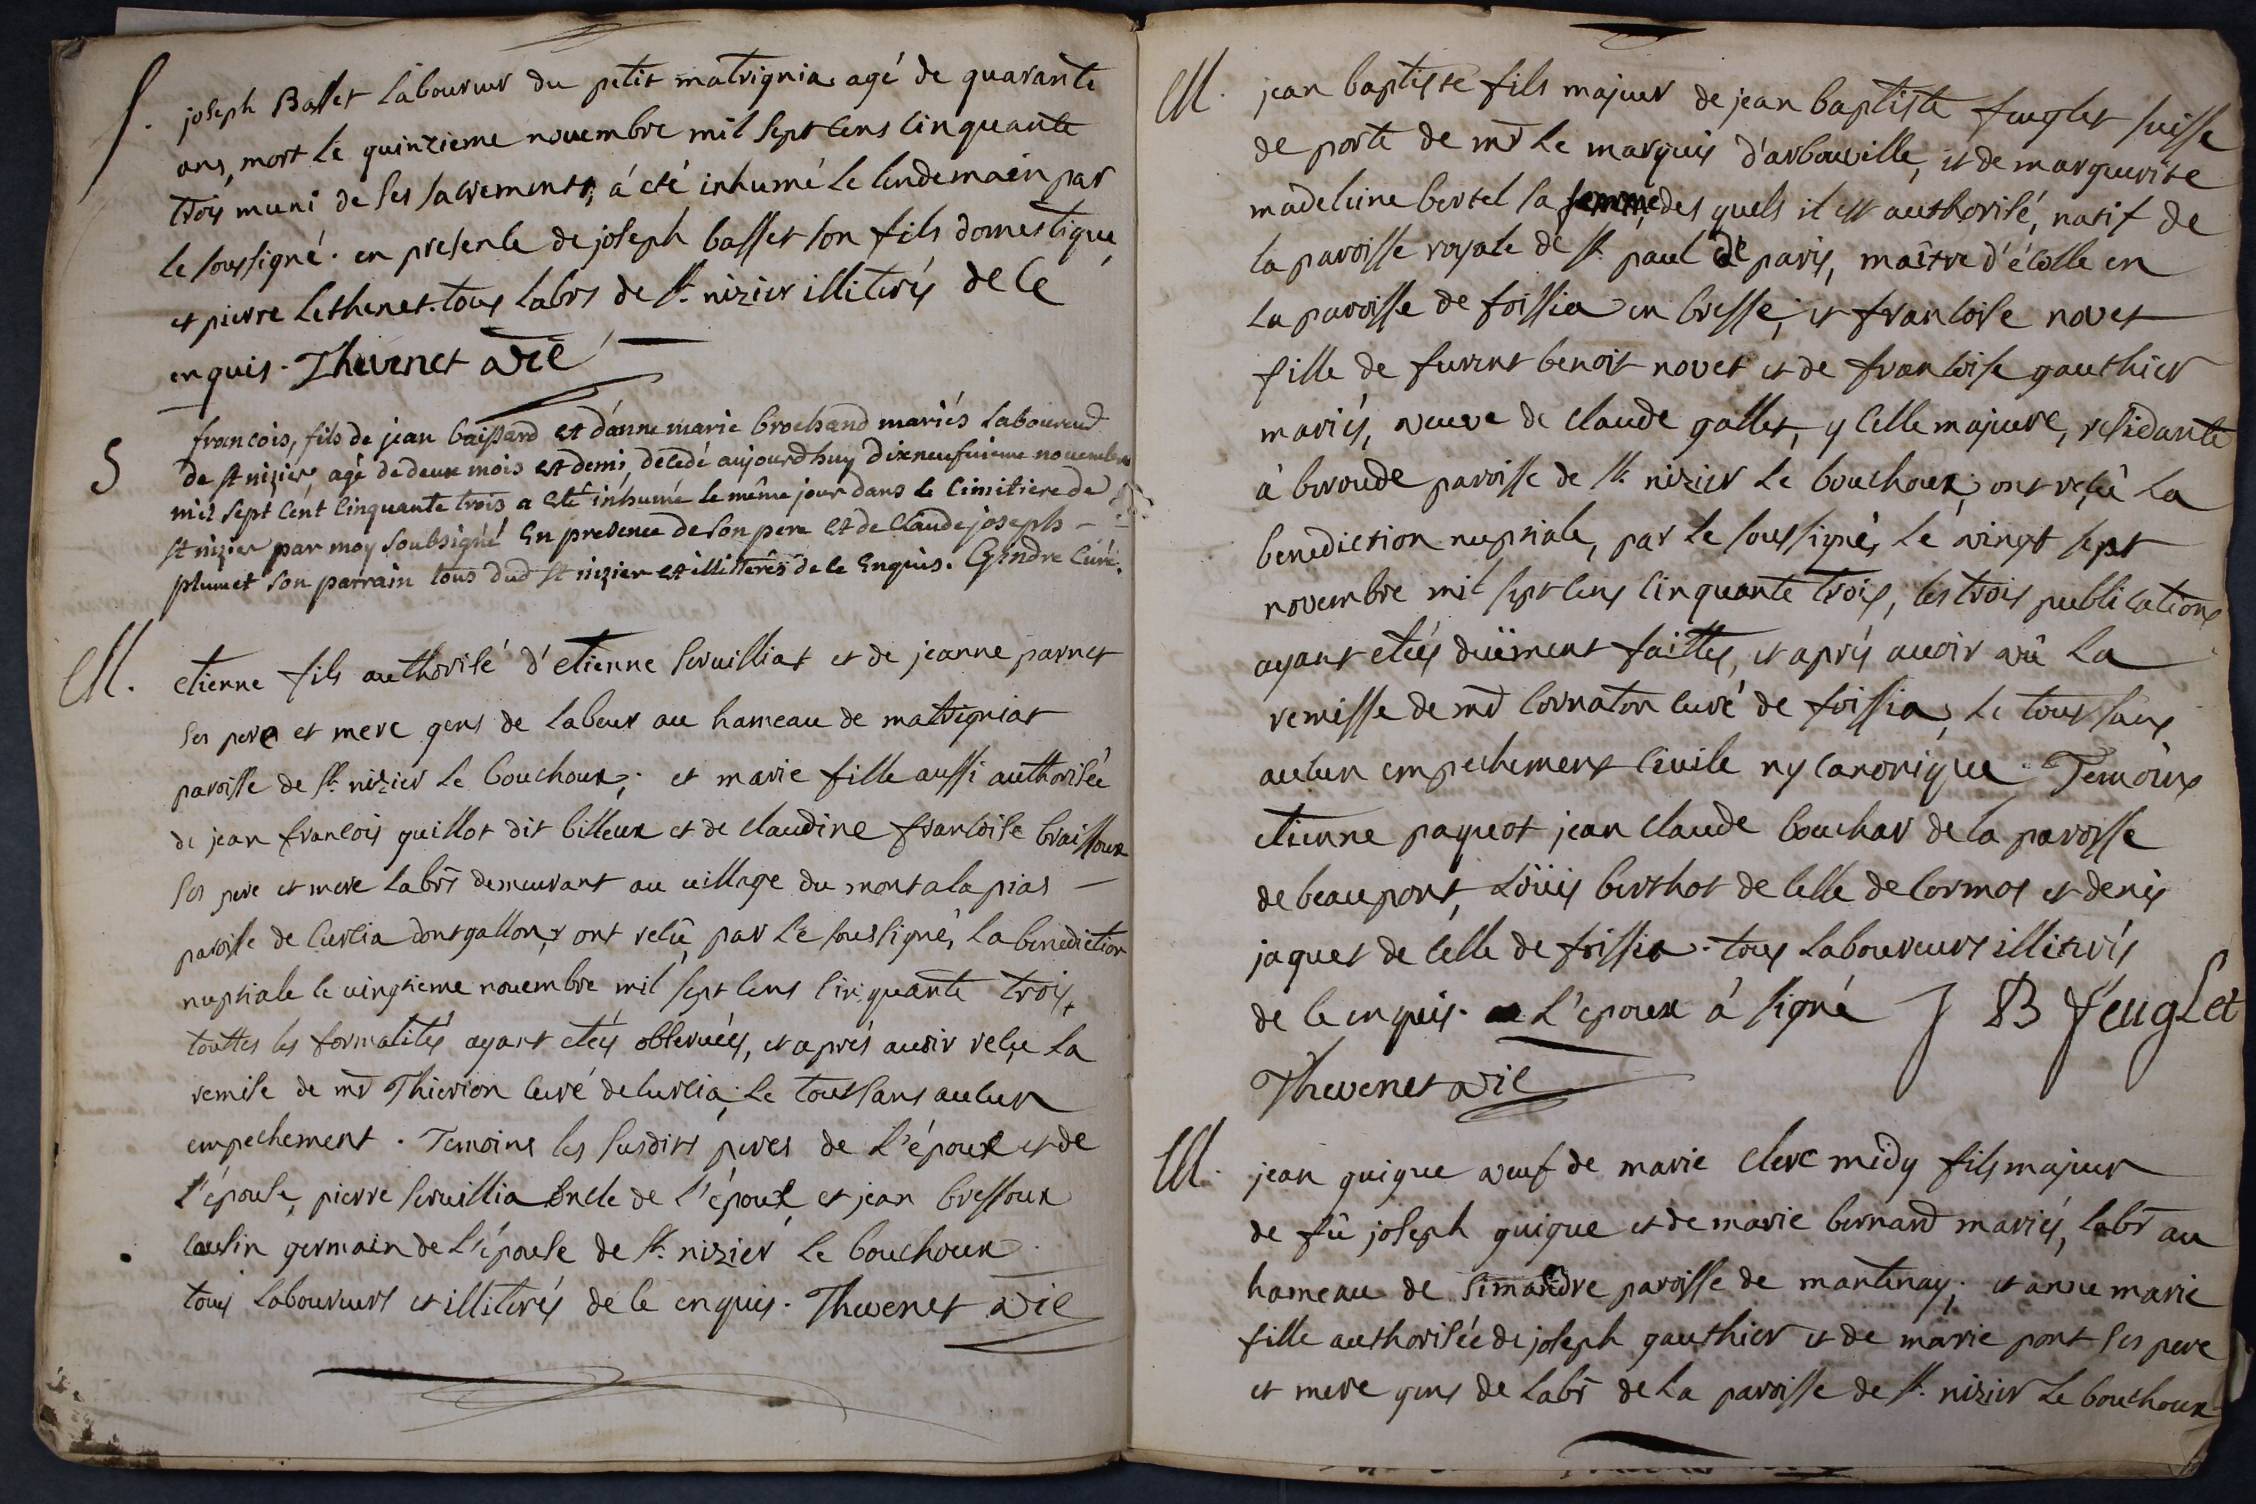 S. joseph Basset laboureur du petit matrignia agé de quarante
ans, mort le quinzieme novembre mil sept cens cinquante
trois muni de ses sacrements, á eté inhumé le lendemain par
le soussigné. en presence de joseph basset son fils domestique,
et pierre tous labrs de st. nizier illiterés de ce
enquis. Thevenet vic
S francois, fils de jean baissard et d'anne marie brochand mariés laboureurs
de st nizier, agé de deux mois et demi, décedé aujourdhuy dixneufuieme novembre
mil sept cent cinquante trois a eté inhumé le même jour dans le cimitiere de
st nizier par moy soubsigné En presence de son pere et de claude joseph
plumet son parrain tous dud st nizier et illiterés de ce Enquis. Gindre curé.
M. etienne fils authorisé d'etienne servilliat et de jeanne parnet
ses pere et mere gens de labeur au hameau de matrigniat
paroisse de st. nizier le bouchoux; et marie fille aussi authorisée
de jean francois guillot dit billeux et de claudine francoise braissoux
ses pere et mere labrs demeurant au village du montalapias
paroisse de curcia dontgallon, ont recû, par le soussigné, la benediction
nuptiale le vingtieme novembre mil sept cens cinquante trois,
touttes les formalités ayant etées observées, et aprés avoir reçu la
remise de mr Thierion curé de curcia; le tout sans aucun
empechement. Temoins les susdits peres de l'époux et de
l'épouse, pierre servillia oncle de l'époux, et jean bressoux
cousin germain de l'épouse de st. nizier le bouchoux
tous laboureurs et illiterés de ce enquis. Thevenet vic
M. jean baptiste fils majeur de jean baptiste feuglet suisse
de porte de mr le marquis d'arbouville, et de marguerite
madeleine bertel sa femme des quels il est authorisé, natif de
la paroisse royale de st. paul de paris, maître d'écolle en
la paroisse de foissia en bresse, et francoise novet
fille de furent benoit novet et de francoise gauthier
mariés, veuve de claude gallet, ycelle majeure, residante
à beroude paroisse de st. nizier le bouchoux, ont reçû la
benediction nuptiale, par le soussigné, le vingt sept
novembre mil sept cens cinquante trois, les trois publications
ayant etées düëment faittes, et aprés avoir vû la
remisse de mr cornaton curé de foissia, le tout sans
aucun empechement civile ny canonique. Temoins
etienne paquet jean claude bouchar de la paroisse
de beaupont, Loüis berthot de celle de cormos et denis
jaquet de celle de foissia. tous laboureurs illiterés
de ce enquis. L'epoux à signé J B feuglet
Thevenet vic
M. jean guigue veuf de marie clerc midy fils majeur
de fû joseph guigue et de marie bernard mariés, labrs au
hameau de simandre paroisse de mantenay; et anne marie
fille authorisée de joseph gauthier et de marie pont ses pere
et mere gens de labr de la paroisse de st. nizier le bouchoux